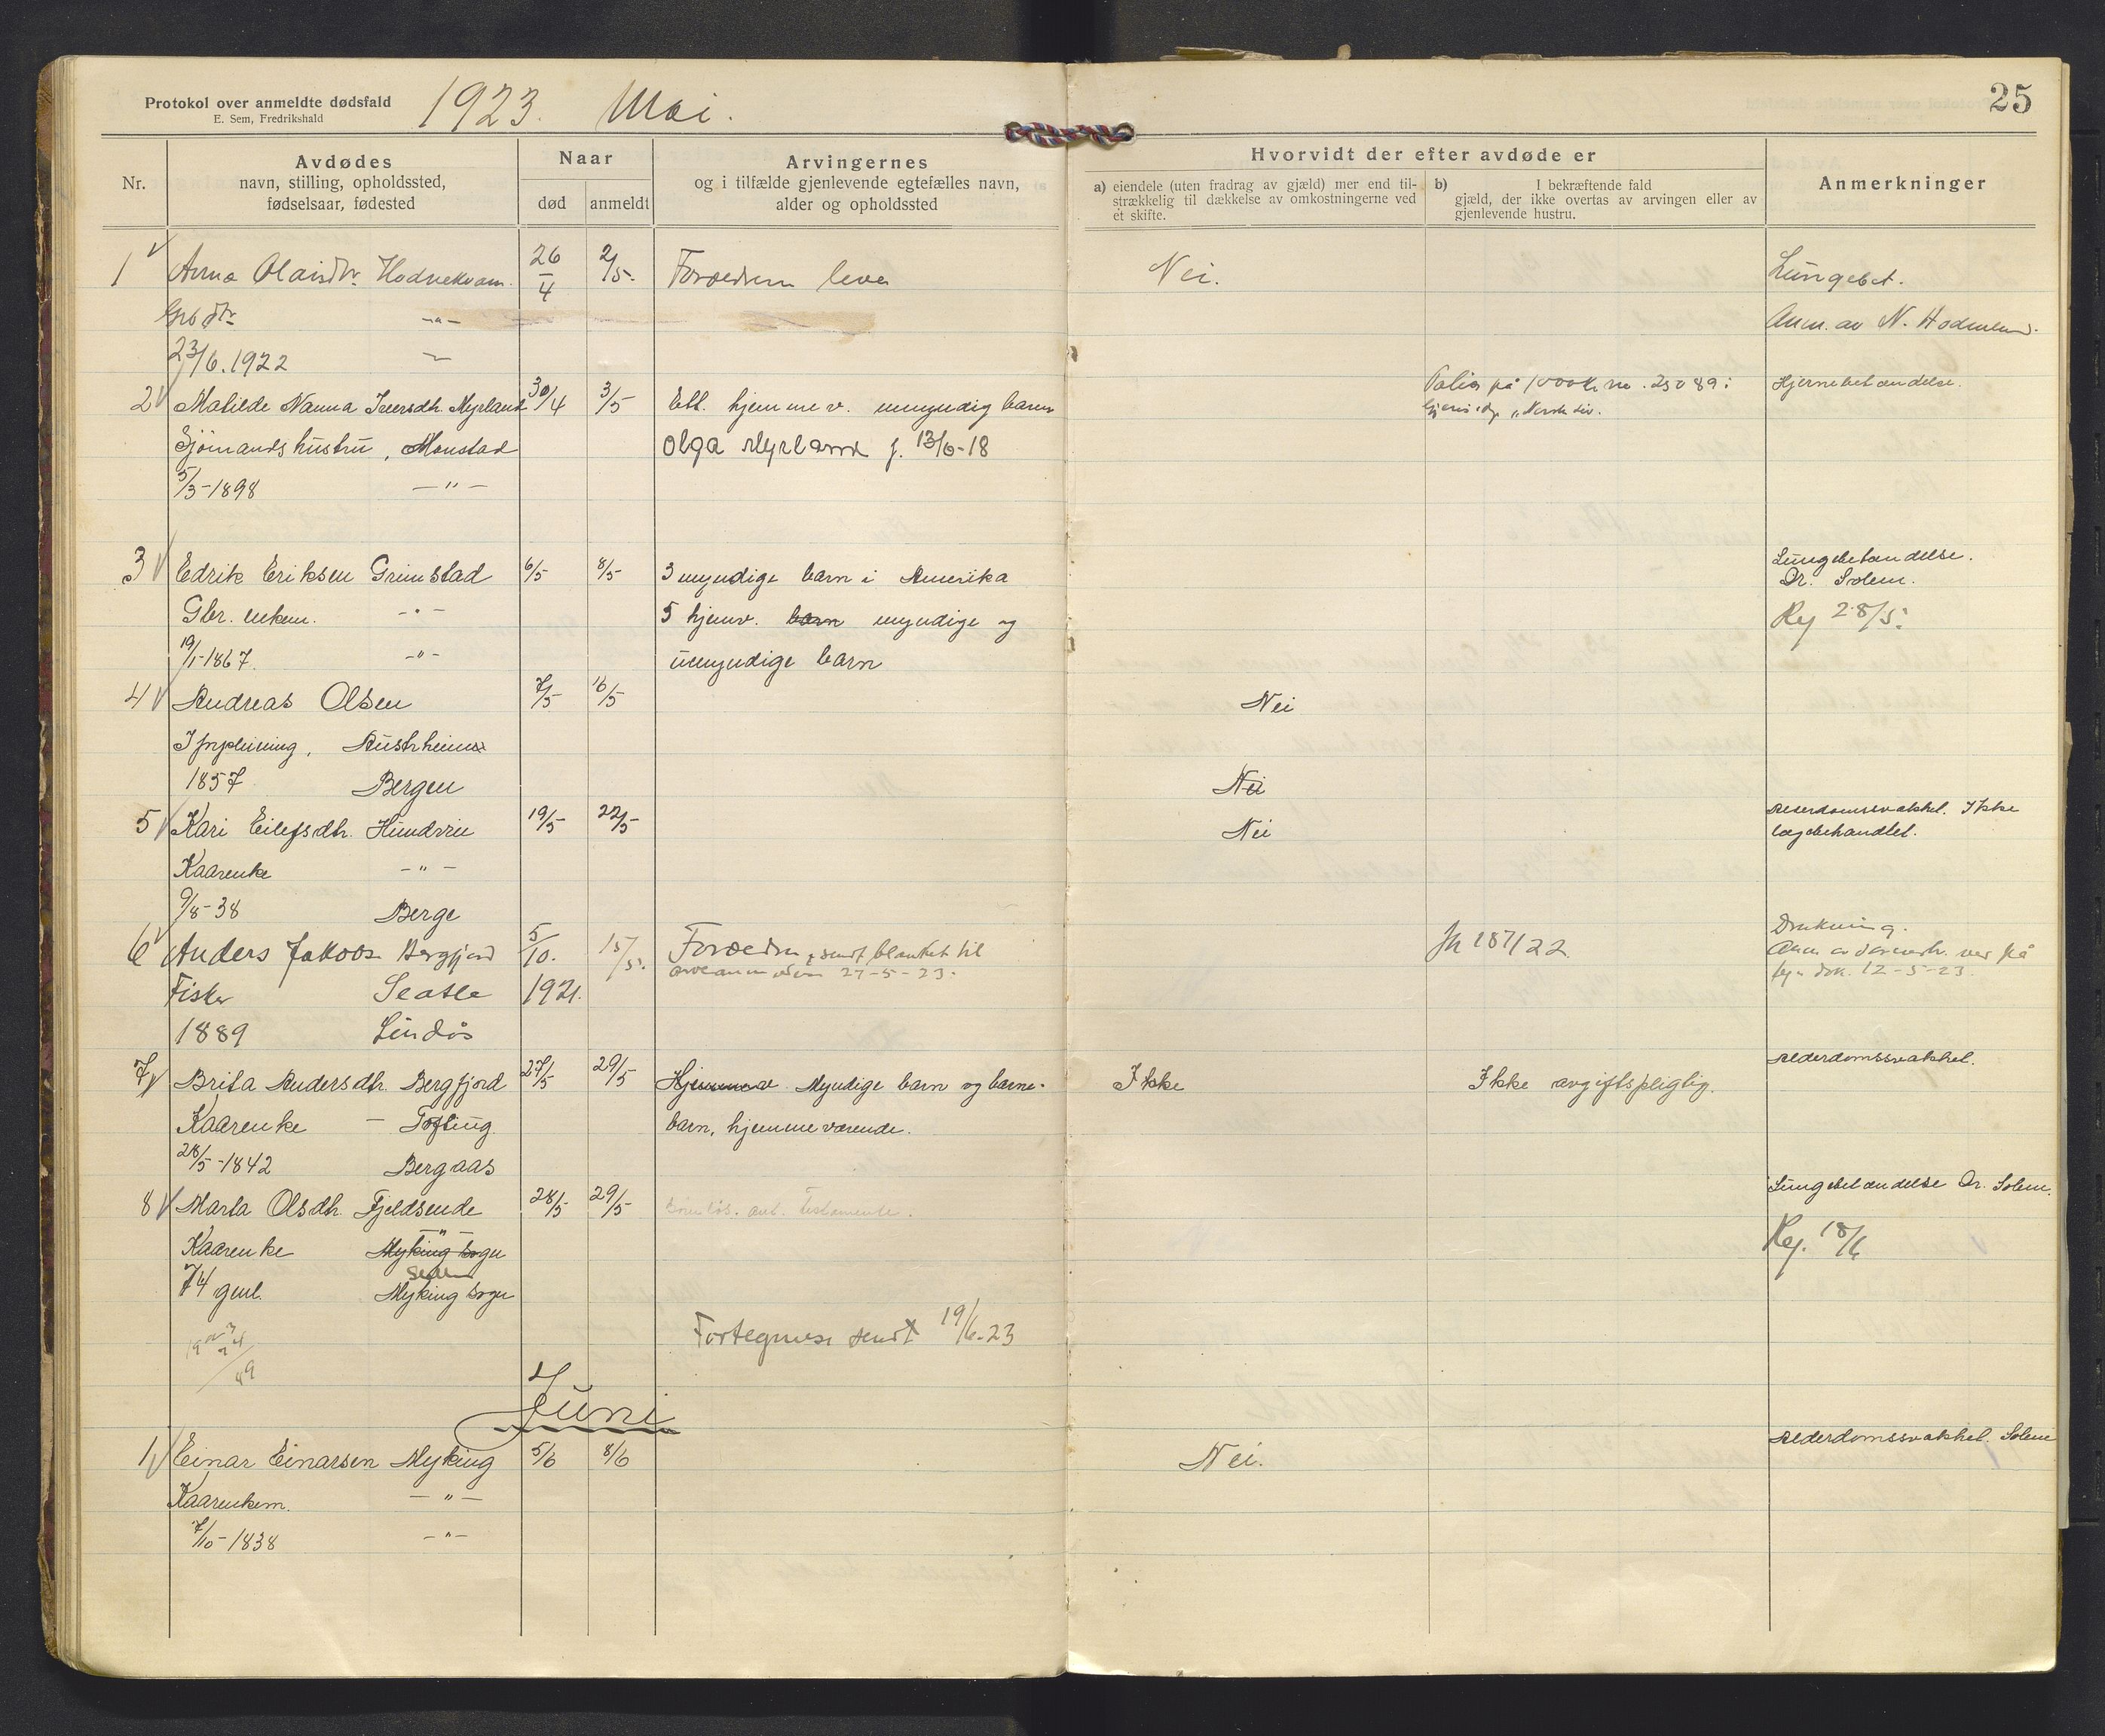 Protokol over anmeldte dødsfald
E. Sem, Fredrikshald
1923. Mai.
25
Nr.
Avdødes
navn, stilling, opholdssted,
fødselsaar, fødested
Naar
død
anmeldt
Arvingernes
og i tilfælde gjenlevende egtefælles navn,
alder og opholdssted
Hvorvidt der efter avdøde er
a) eiendele (uten fradrag av gjæld) mer end til-
strækkelig til dækkelse av omkostningerne ved
et skifte.
b) I bekræftende fald
gjæld, der ikke overtas av arvingen eller av
gjenlevende hustru.
Anmerkninger
1 Anna Olaisdtr. Hodnekvam. 26/4 2/5. Forældrene lever Nei. Lungebet.
Grb dtr -"- Anm. av N. Hodnelund.
23/6.1922 -"-
2 Matilde Nanna Iversdtr. Myrland 30/4 3/5 Ett. hjemmev. umyndig barn på 1000 kr. Hjernebetændelse.
Sjømands hustru, Monstad Olga Myrland f. 13/6-18
5/3-1898 -"-
3 Edrik Eriksen Grimstad 6/5 8/5 3 myndige barn i Amerika Lungebetændelse.
Dr. Solem.
Gbr. enkem. -"- 5 hjemv. barn myndige og Reg 28/5.
19/1-1867. -"- umyndige barn
4 Andreas Olsen 7/5 16/5 Nei
Austrheim
1857 Bergen Nei
5 Kari Eilefsdtr. Hundvin 19/5 22/5 Nei Alderdomssvakhet. Ikke
lægebehandlet.
Kaarenke -"-
9/8-38 Berge
6 Anders Jakobs Bergfjord 5/10. 15/5. Forældre, sendt blanket til Jn 187/22 Drukning.
arveanmelden 27-5-23.
Fisker Seatle 1921. 12-5-23.
1889 Lindås
7 Brita Andersdtr. Bergfjord 27/5 29/5 Hjemmev. Myndige barn og barne- Ikke Ikke avgiftspligtig. Alderdomssvakhet.
Kaarenke - Tofting. barn, hjemmeværende.
28/5-1842 Bergaas
8 Marta Olsdtr. Fjeldsende 28/5 29/5 Barnløs. ant. Testamente. Lungebetændelse Dr. Solem.
Kaarenke Myking sogn Reg. 18/6
74 gml. Myking sogn
Fortegnelse sendt 19/6-23
Juni
1 Einar Einarsen Myking 5/6 8/6 Nei. Alderdomssvakhet. Solem
Kaarenkem. -"-
7/10-1838 -"-